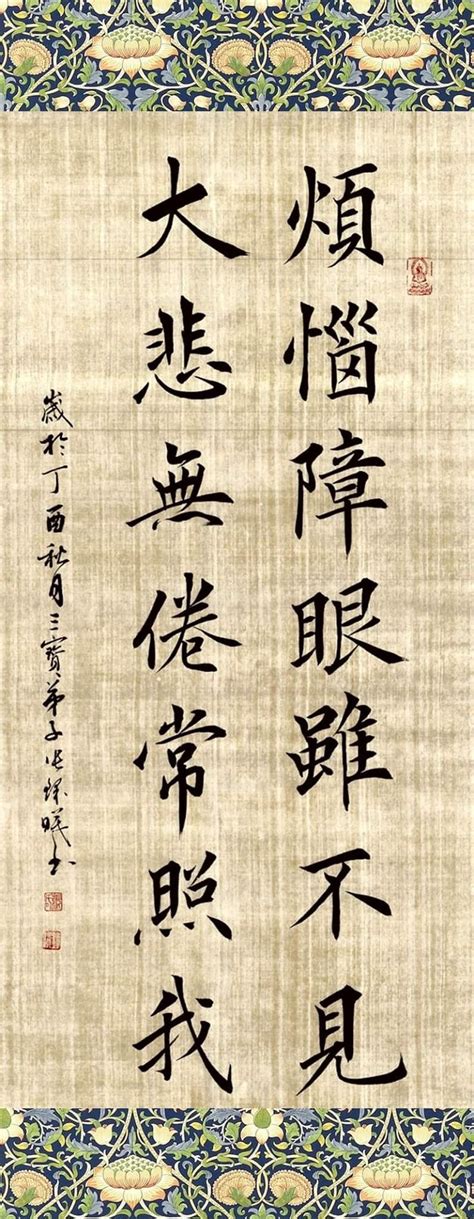 煩惱障眼雖不見
大悲無倦常照我
歲於丁酉秋月三寶弟子張